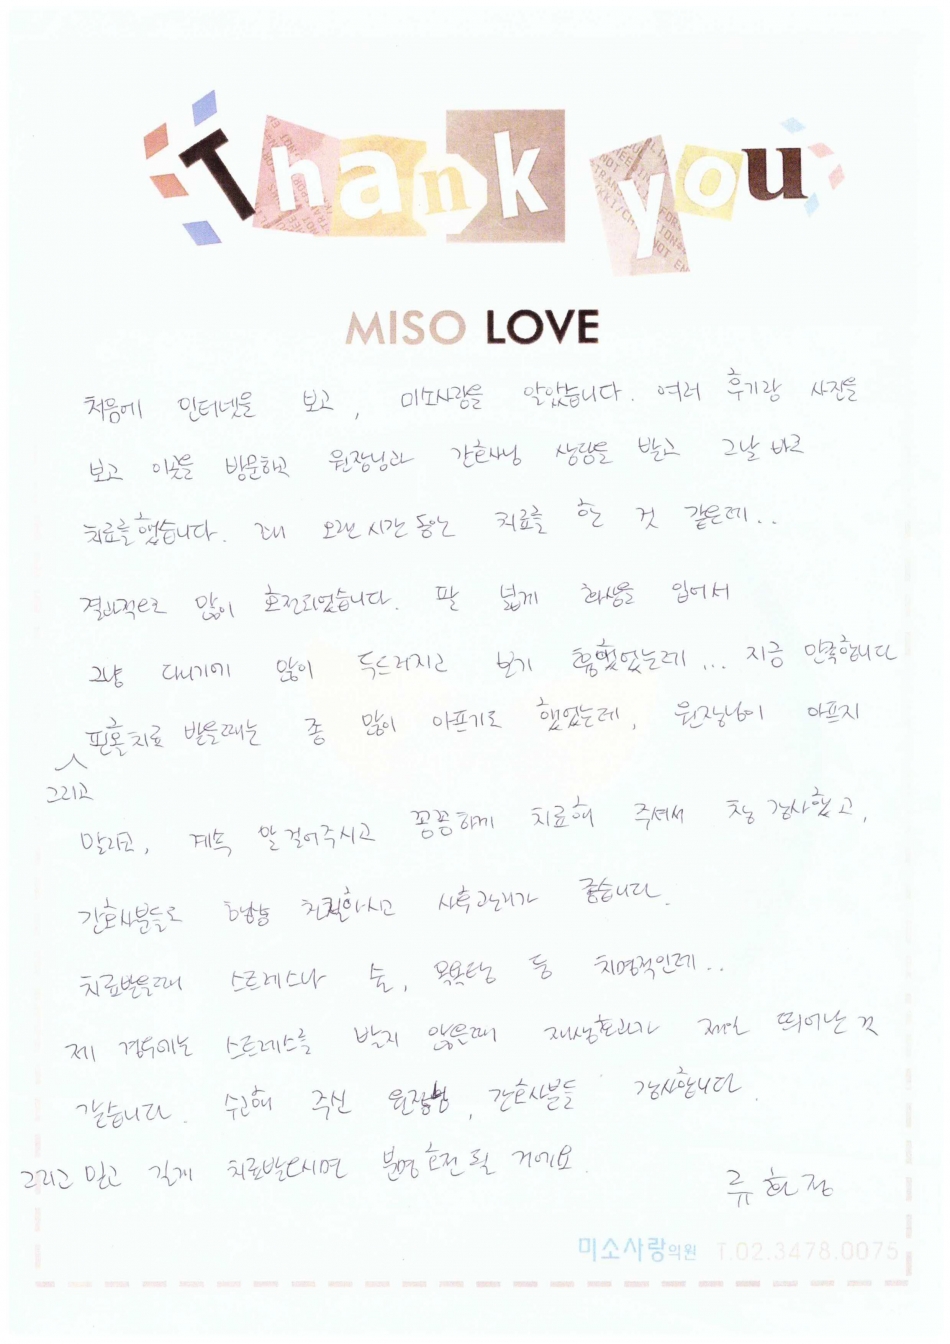 Thank you
MISO LOVE
처음에 인터넷을 보고, 미소사랑을 알았습니다. 여러 후기랑 사진을
보고 이곳을 방문하고 원장님과 간호사님 상담을 받고 그날 바로
치료를 했습니다. 꽤 오랜시간 동안 치료를 한 것 같은데..
결과적으로 많이 호전되었습니다. 팔 넓게 화상을 입어서
그냥 다니기에 많이 두드러지고 보기 흉했었는데... 지금 만족합니다
그리고 핀홀치료 받을때는 좀 많이 아프기도 했었는데, 원장님이 아프지
말라고, 계속 말걸어주시고 꼼꼼하게 치료해 주셔서 참 감사했고,
간호사분들도 항상 친절하시고 사후관리가 좋습니다.
치료받을때 스트레스나 술, 목욕탕 등 치명적인데..
제 경우에는 스트레스를 받지 않을때 재생효과가 제일 뛰어난 것
같습니다. 수고해 주신 원장님, 간호사분들 감사합니다.
그리고 믿고 길게 치료받으시면 분명 호전될 거에요.
류화정
미소사랑의원 T.02.3478.0075